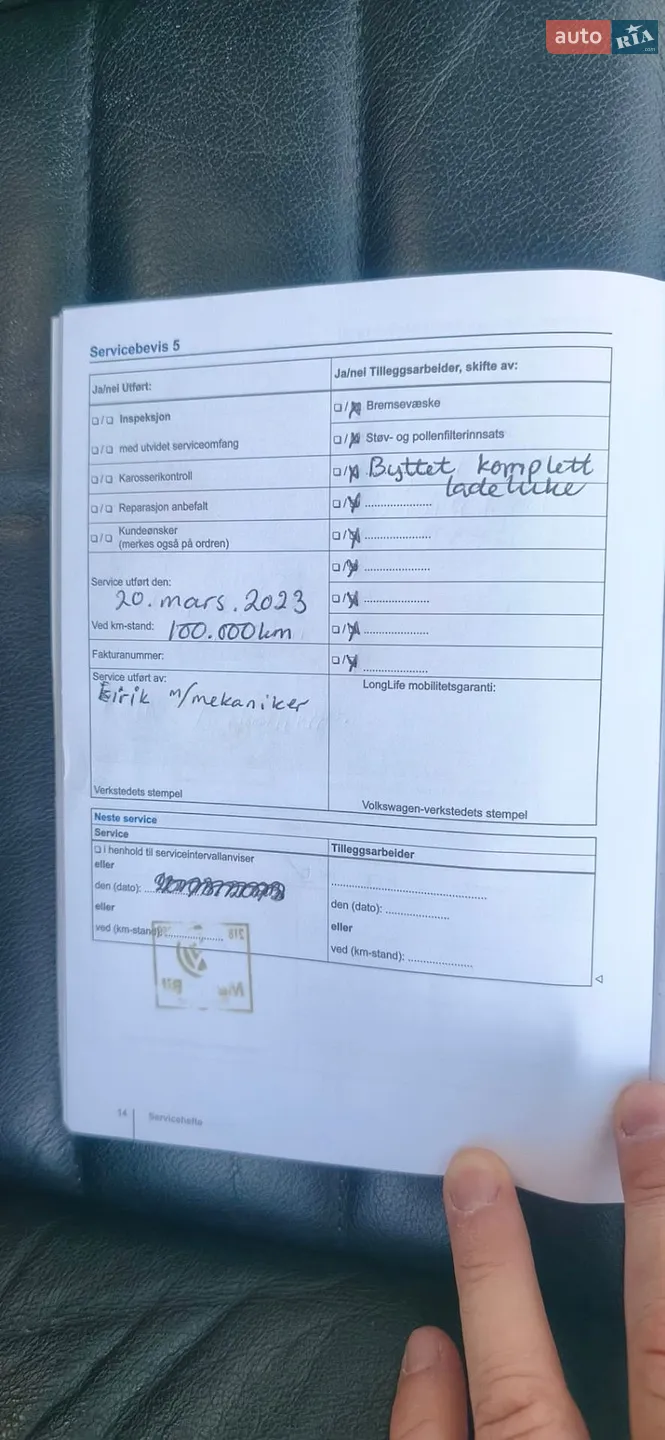 auto RIA
.com
Servicebevis 5
Ja/nei Utført:
❏/❏ Inspeksjon
❏/❏ med utvidet serviceomfang
❏/❏ Karosserikontroll
❏/❏ Reparasjon anbefalt
❏/❏ Kundeønsker
(merkes også på ordren)
Service utført den:
20. mars. 2023
Ved km-stand: 100.000km
Fakturanummer:
Service utført av:
Eirik m/mekaniker
Verkstedets stempel
Ja/nei Tilleggsarbeider, skifte av:
❏/❏ Bremsevæske
❏/❏ Støv- og pollenfilterinnsats
❏/❏ Byttet komplett
ladeluke
❏/❏ ....................
❏/❏ ....................
❏/❏ ....................
❏/❏ ....................
❏/❏ ....................
❏/❏ ....................
LongLife mobilitetsgaranti:
Volkswagen-verkstedets stempel
Neste service
Service
❏ i henhold til serviceintervallanviser
eller
den (dato):
eller
ved (km-stand): ....................
Tilleggsarbeider
................................................
den (dato): ....................
eller
ved (km-stand): ....................
14 Servicehefte